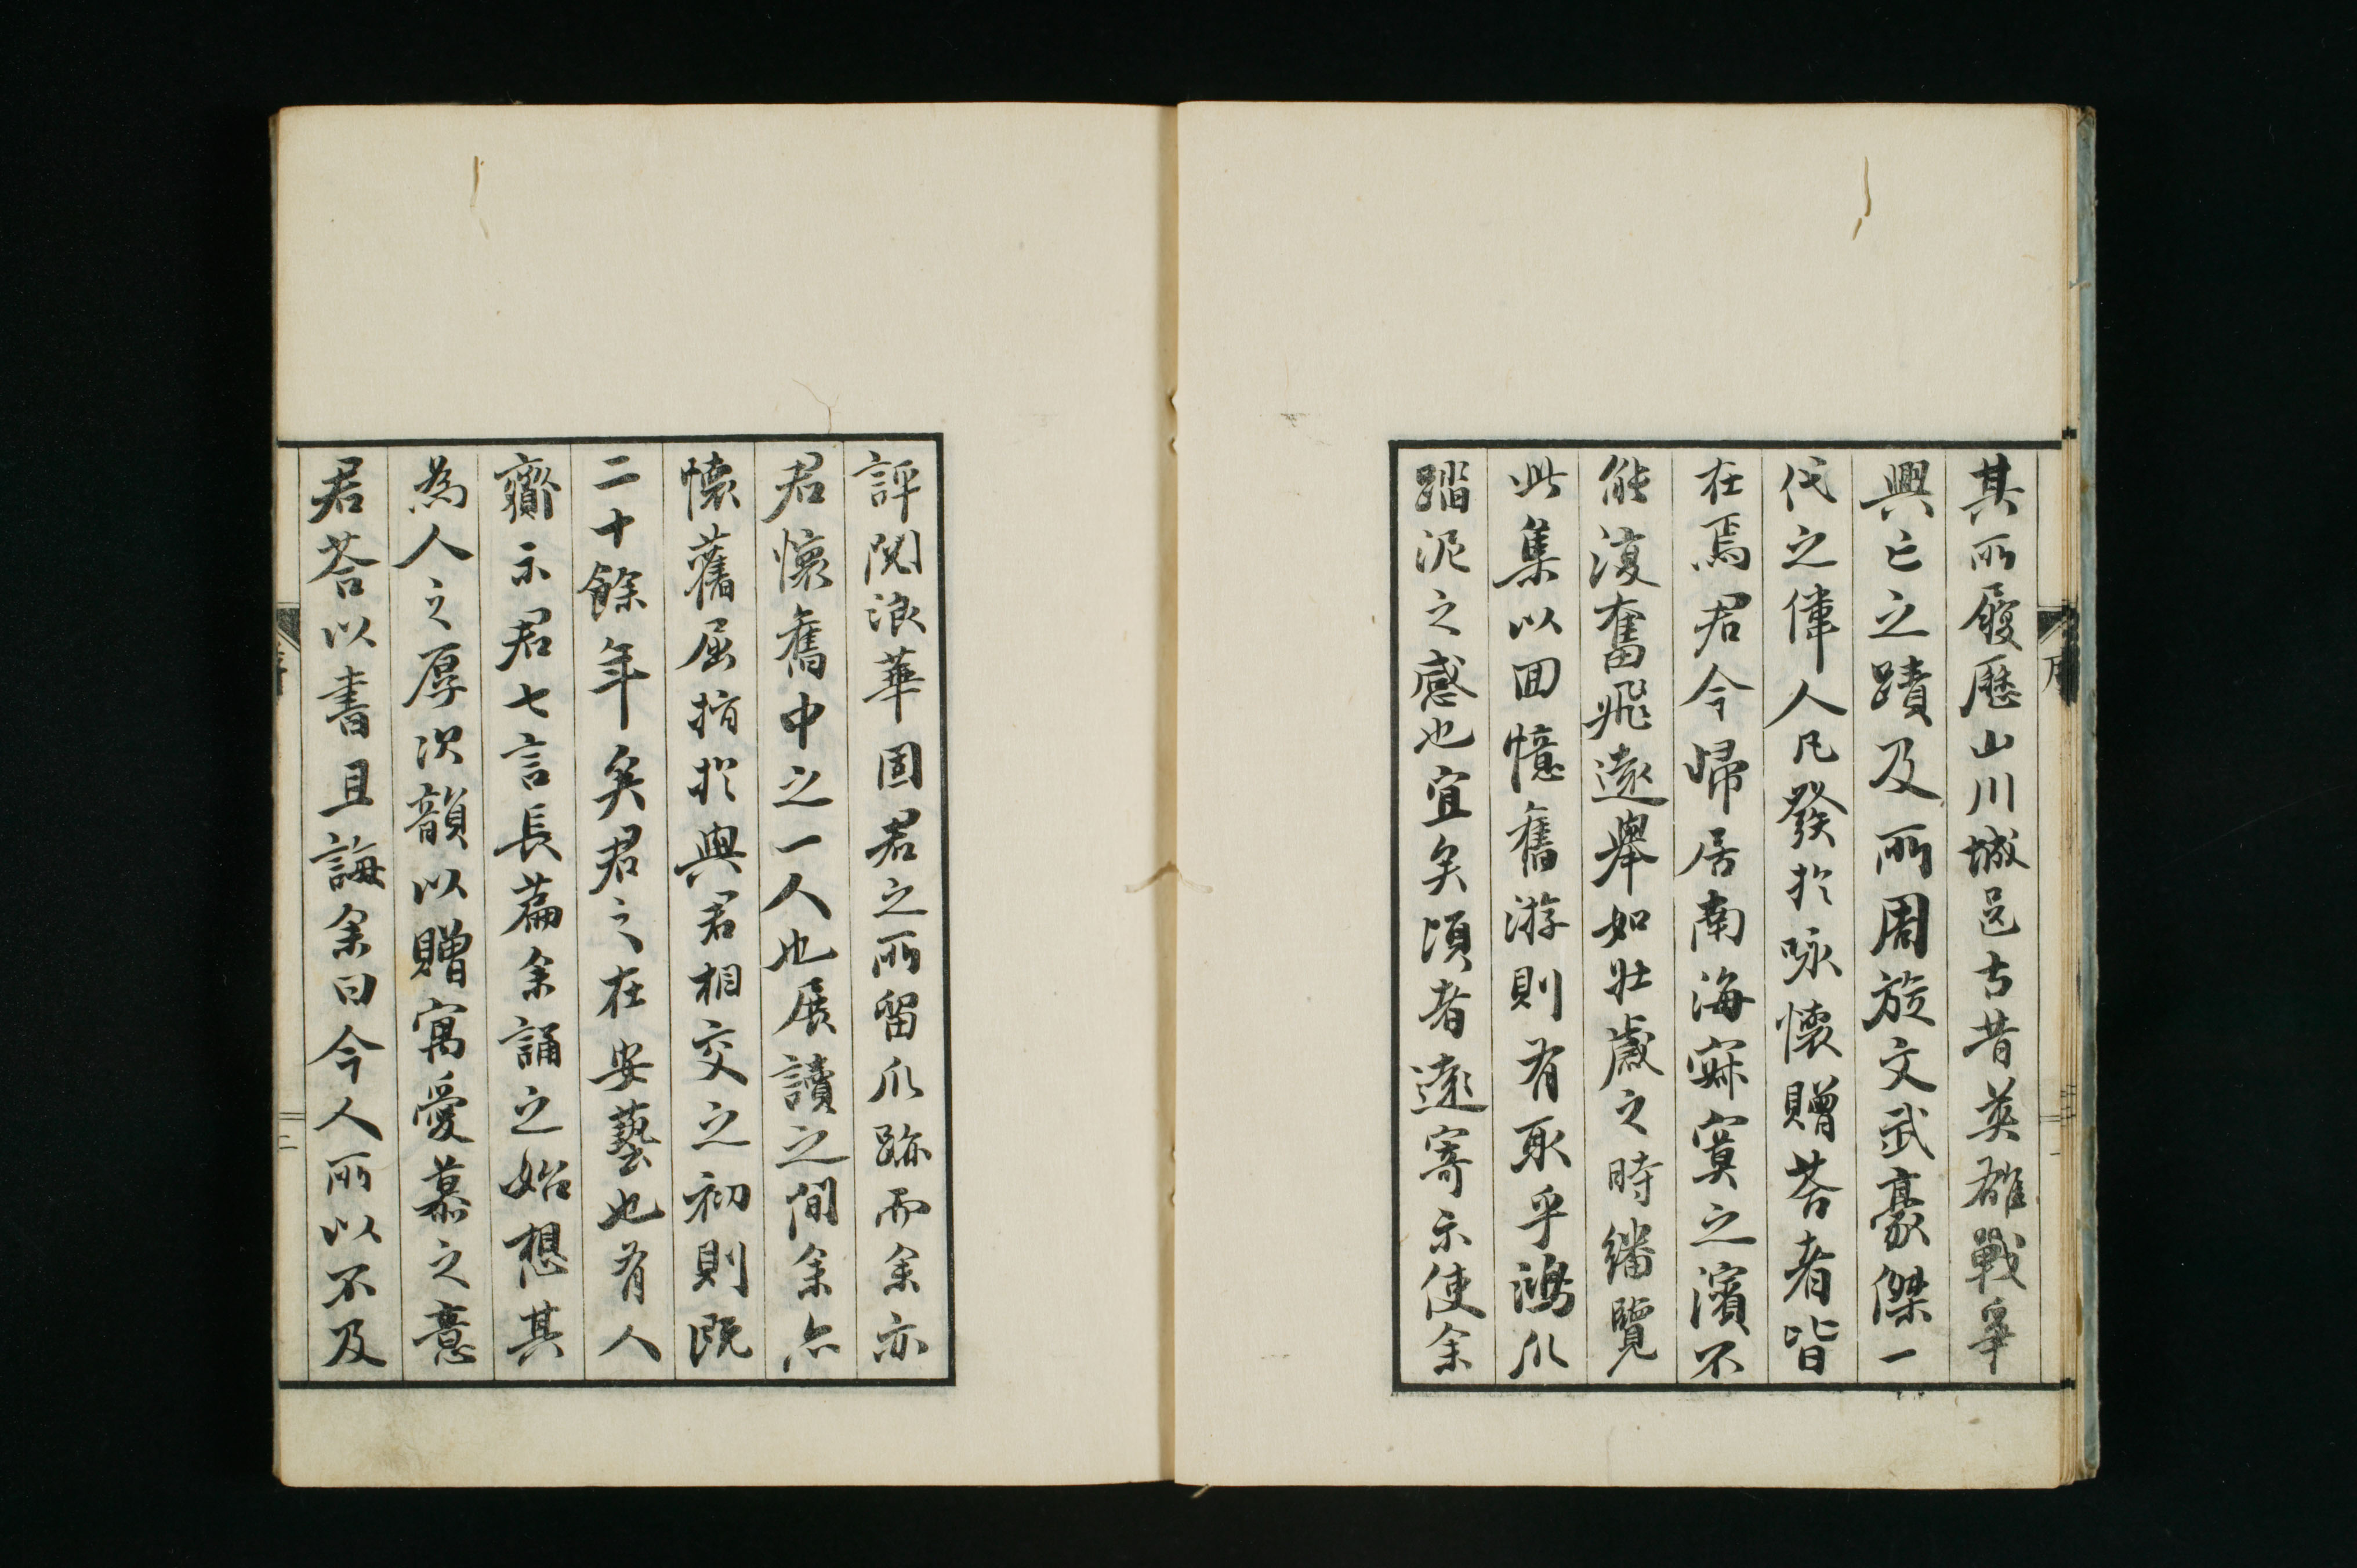 其所履歴山川城邑古昔英雄戰爭
興亡之蹟及所周旋文武豪傑一
代之偉人凡發於咏懷贈荅者皆
在焉君今歸居南海寂寞之濱不
能復奮飛遠舉如壯歲之時繙覽
此集以回憶舊游則有取乎鴻爪
踏泥之感也宜矣頃者遠寄示使余
評閱浪華固君之所留爪跡而余亦
君懷舊中之一人也展讀之間余亦
懷舊屈指於與君相交之初則既
二十餘年矣君之在安藝也有人
齎示君七言長篇余誦之始想其
為人之厚次韻以贈寓愛慕之意
君荅以書且誨余曰今人所以不及
序
一
二